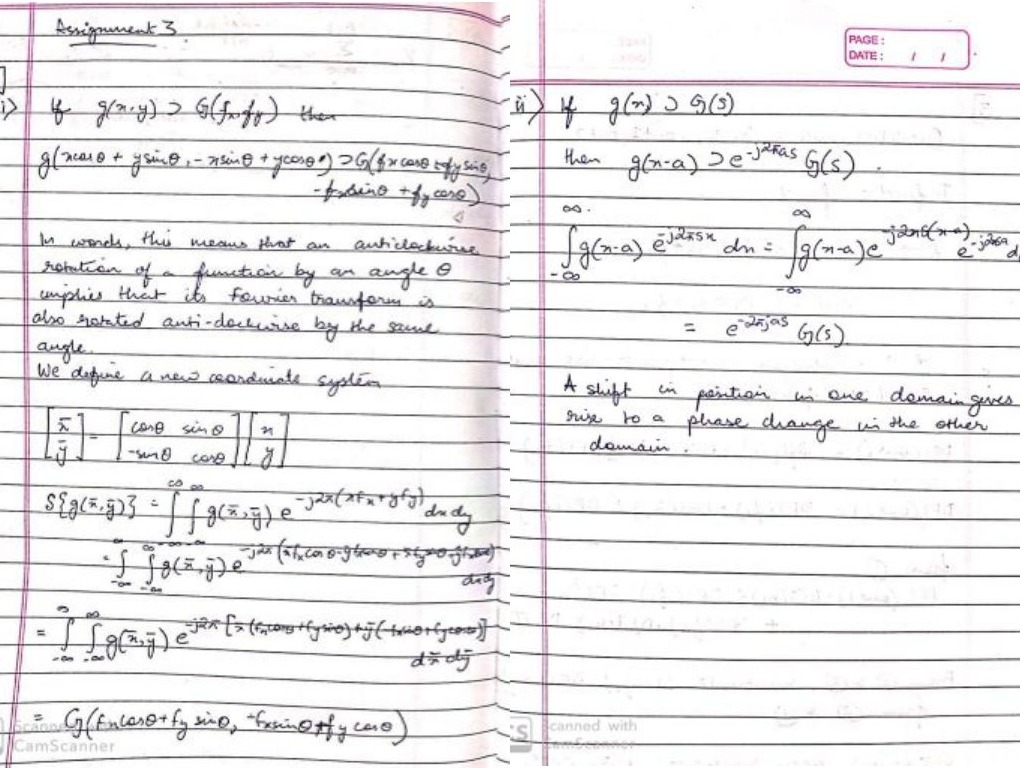 Assignment 3
i) If g(x,y) ⊃ G(fx,fy) then
g(xcosθ + ysinθ, -xsinθ + ycosθ) ⊃ G(fxcosθ + fysinθ,
-fxsinθ + fycosθ)
In words, this means that an anticlockwise
rotation of a function by an angle θ
implies that its Fourier transform is
also rotated anti-clockwise by the same
angle.
We define a new coordinate system
[x̄ ȳ] = [cosθ sinθ -sinθ cosθ] [x y]
S{g(x̄,ȳ)} = ∫∞-∞ ∫∞-∞ g(x̄,ȳ) e^-j2π(xfx+yfy) dxdy
= ∫∞-∞ ∫∞-∞ g(x̄,ȳ) e^-j2π
dxdy
= ∫∞-∞ ∫∞-∞ g(x̄,ȳ) e^-j2π[x̄(fxcosθ+fysinθ)+ȳ(-fxsinθ+fycosθ)]
dx̄ dȳ
= G(fxcosθ+fy sinθ, -fxsinθ+fy cosθ)
PAGE:
DATE: / /
ii) If g(x) ⊃ G(s)
then g(x-a) ⊃ e^-j2πas G(s).
∫∞-∞ g(x-a) e^-j2πsx dx = ∫∞-∞ g(x-a) e^-j2πs(x-a) e^-j2πsa d
= e^-2πjas G(s)
A shift in position in one domain gives
rise to a phase change in the other
domain.
Scanned with
CamScanner
CS Scanned with
CamScanner